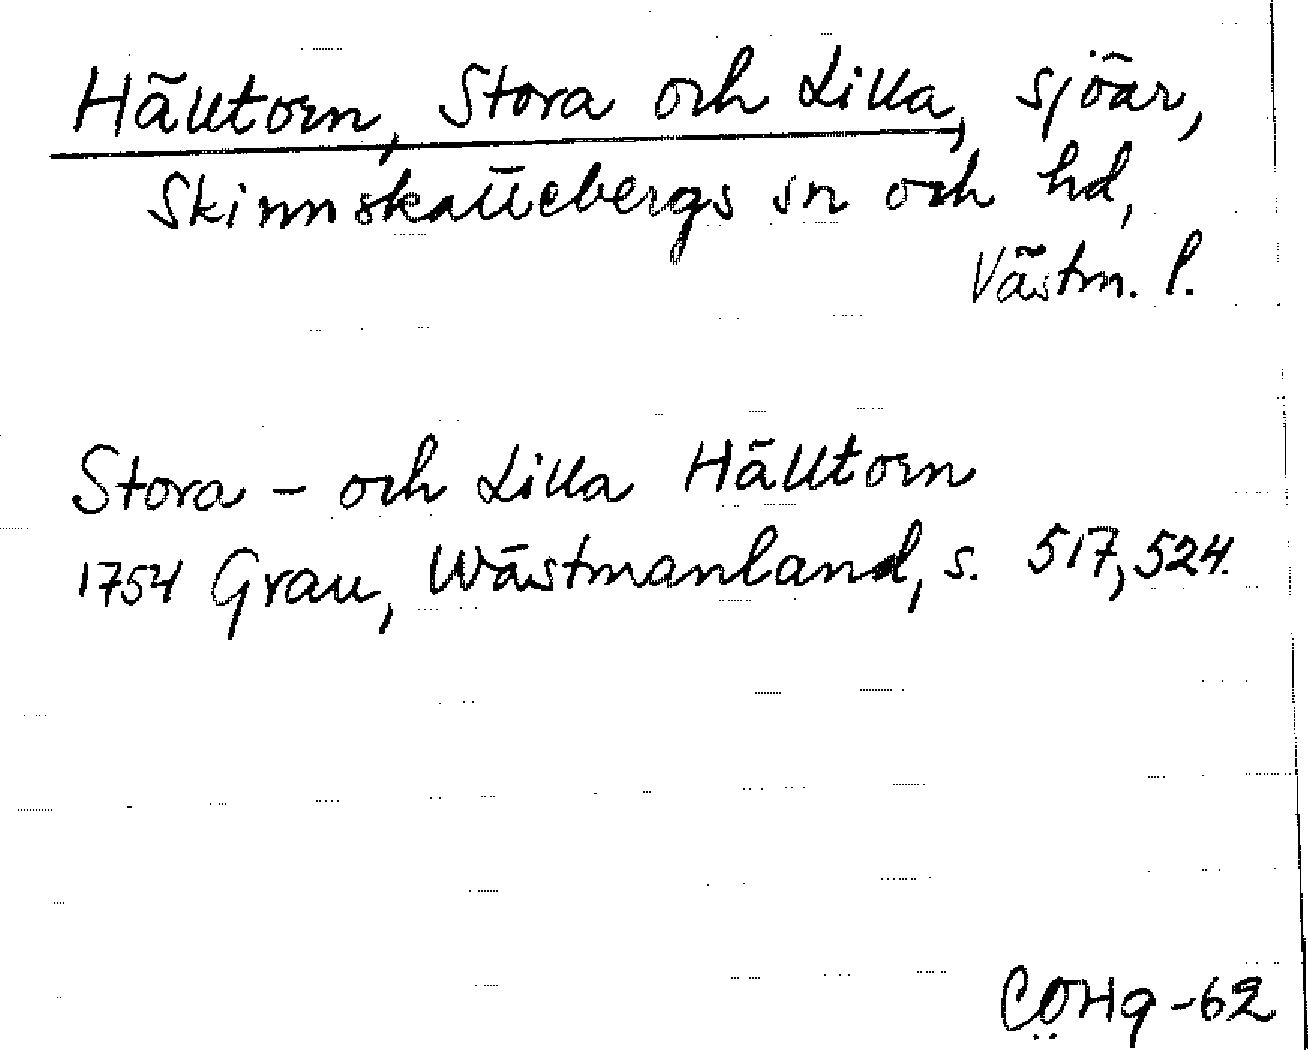 Hälltorn, Stora och Lilla, sjöar,
Skinnskattebergs sn och hd,
Västm. l.
Stora - och Lilla Hälltorn
1754 Grau, Wästmanland, s. 517, 524.
CÖHg-62